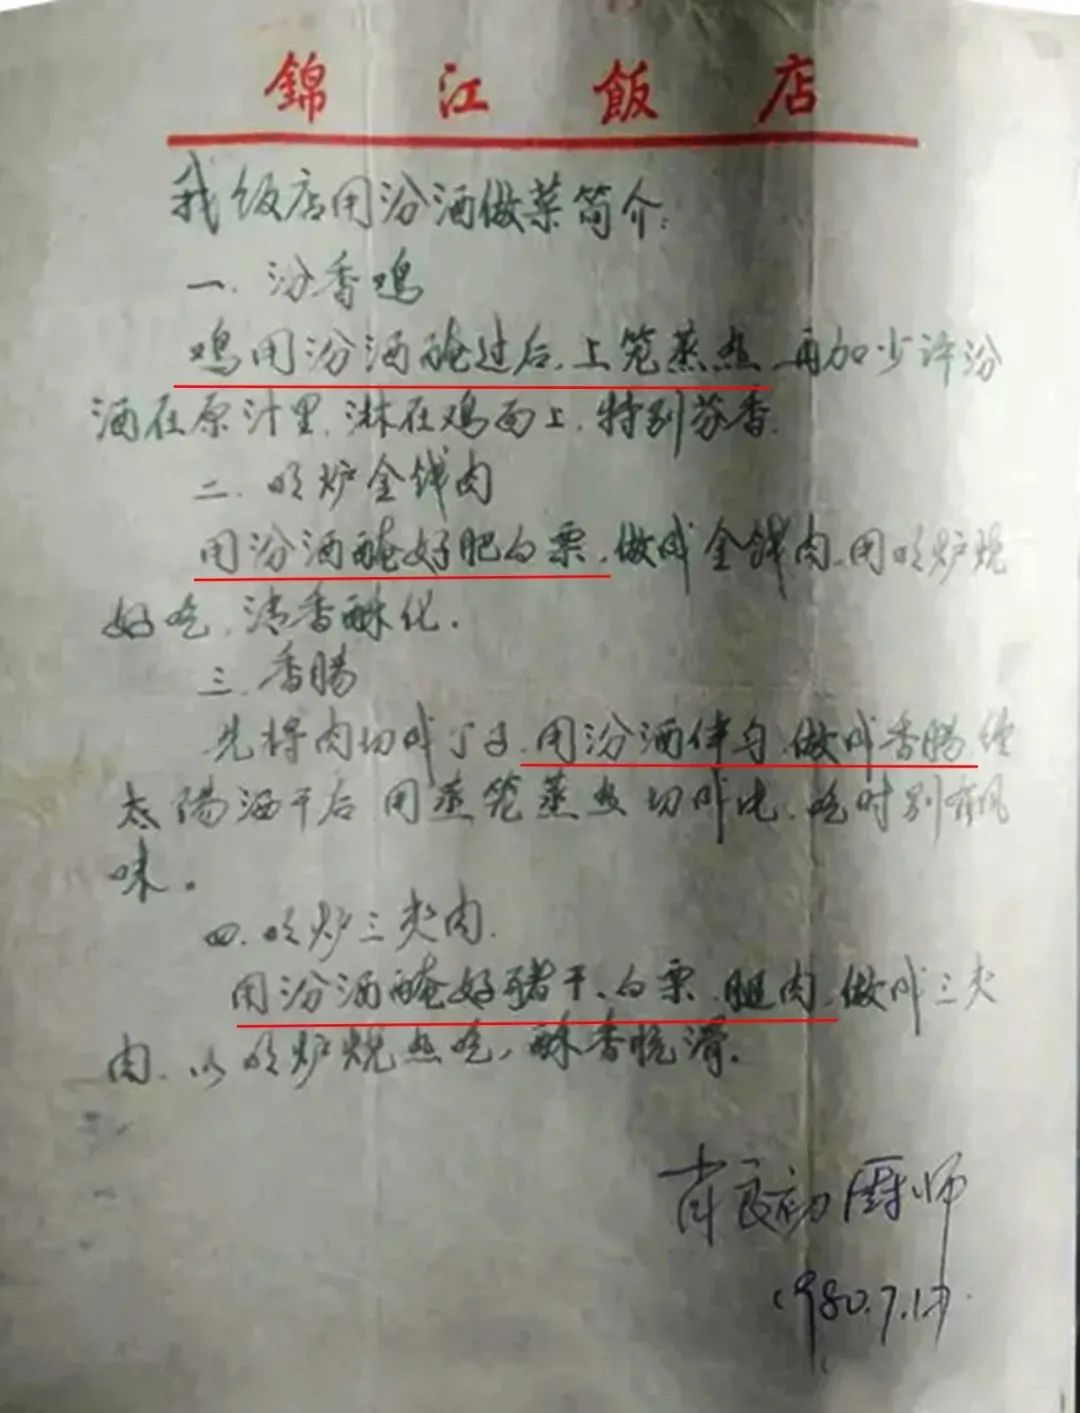 錦江飯店
我饭店用汾酒做菜简介:
一.汾香鸡
鸡用汾酒醃过后.上笼蒸熟.再加少许汾
酒在原汁里.淋在鸡面上.特别芬香.
二.明炉金钱肉
用汾酒醃好肥白票.做成金钱肉.用明炉烧
好吃.清香酥化.
三.香腸
先将肉切成丁子.用汾酒伴匀.做成香腸经
太陽洒干后 用蒸笼蒸熟切成片.吃时别有风
味.
四.明炉三夹肉.
用汾酒醃好猪干、白票.腿肉.做成三夹
肉.以明炉烧熟吃,酥香 滑.
肖良初厨师
1980.7.